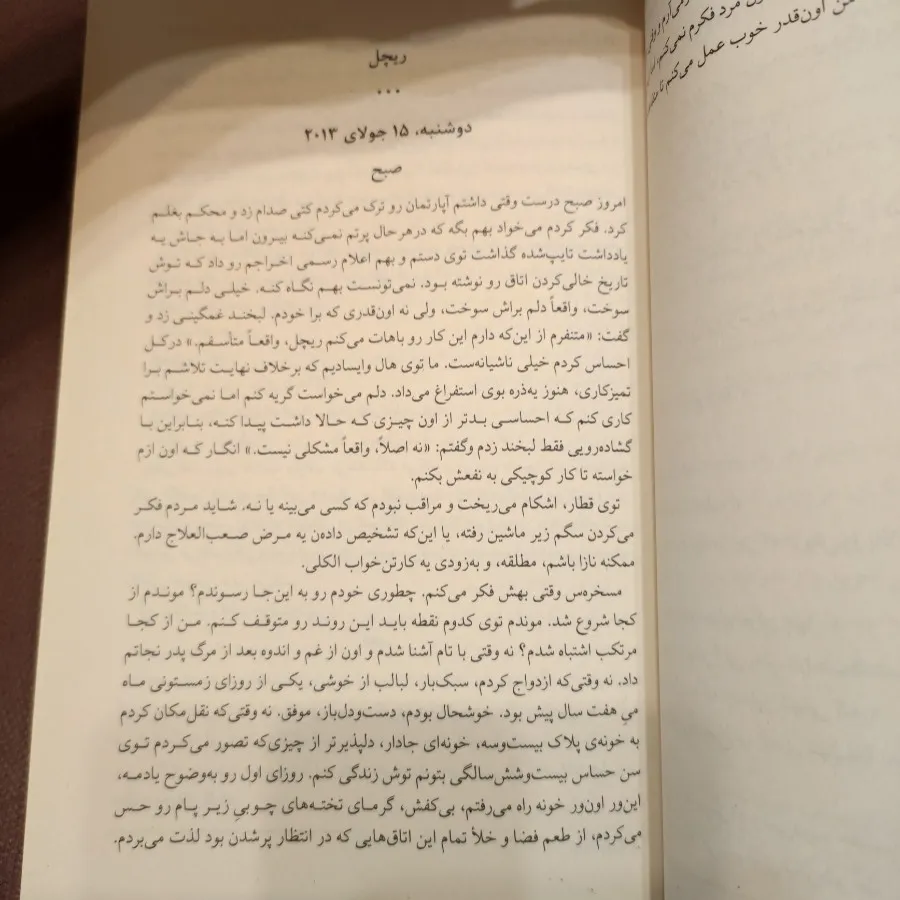 ریچل
...
دوشنبه، ۱۵ جولای ۲۰۱۳
صبح
امروز صبح درست وقتی داشتم آپارتمان رو ترک می‌کردم کتی صدام زد و محکم بغلم
کرد. فکر کردم می‌خواد بهم بگه که درهرحال پرتم نمی‌کنه بیرون اما به جاش یه
یادداشت تایپ‌شده گذاشت توی دستم و بهم اعلام رسمی اخراجم رو داد که توش
تاریخ خالی‌کردن اتاق رو نوشته بود. نمی‌تونست بهم نگاه کنه. خیلی دلم براش
سوخت، واقعاً دلم براش سوخت، ولی نه اون‌قدری که برا خودم. لبخند غمگینی زد و
گفت: «متنفرم از این‌که دارم این کار رو باهات می‌کنم ریچل، واقعاً متأسفم.» درکل
احساس کردم خیلی ناشیانه‌ست. ما توی هال وایسادیم که برخلاف نهایت تلاشم برا
تمیزکاری، هنوز یه‌ذره بوی استفراغ می‌داد. دلم می‌خواست گریه کنم اما نمی‌خواستم
کاری کنم که احساسی بدتر از اون چیزی که حالا داشت پیدا کنه، بنابراین با
گشاده‌رویی فقط لبخند زدم وگفتم: «نه اصلاً، واقعاً مشکلی نیست.» انگار که اون ازم
خواسته تا کار کوچیکی به نفعش بکنم.
توی قطار، اشکام می‌ریخت و مراقب نبودم که کسی می‌بینه یا نه. شاید مردم فکر
می‌کردن سگم زیر ماشین رفته، یا این‌که تشخیص داده‌ن یه مرض صعب‌العلاج دارم.
ممکنه نازا باشم، مطلقه، و به‌زودی یه کارتن‌خواب الکلی.
مسخره‌س وقتی بهش فکر می‌کنم. چطوری خودم رو به این‌جا رسوندم؟ موندم از
کجا شروع شد. موندم توی کدوم نقطه باید این روند رو متوقف کنم. من از کجا
مرتکب اشتباه شدم؟ نه وقتی با تام آشنا شدم و اون از غم و اندوه بعد از مرگ پدر نجاتم
داد. نه وقتی‌که ازدواج کردم، سبک‌بار، لبالب از خوشی، یکی از روزای زمستونی ماه
میِ هفت سال پیش بود. خوشحال بودم، دست‌ودل‌باز، موفق. نه وقتی‌که نقل‌مکان کردم
به خونه‌ی پلاک بیست‌وسه، خونه‌ای جادار، دلپذیرتر از چیزی‌که تصور می‌کردم توی
سن حساس بیست‌وشش‌سالگی بتونم توش زندگی کنم. روزای اول رو به‌وضوح یادمه،
این‌ور اون‌ور خونه راه می‌رفتم، بی‌کفش، گرمای تخته‌های چوبیِ زیر پام رو حس
می‌کردم، از طعم فضا و خلأ تمام این اتاق‌هایی که در انتظار پرشدن بود لذت می‌بردم.
مرد فکرم نمی‌کنم
اون‌قدر خوب عمل می‌کنم تا